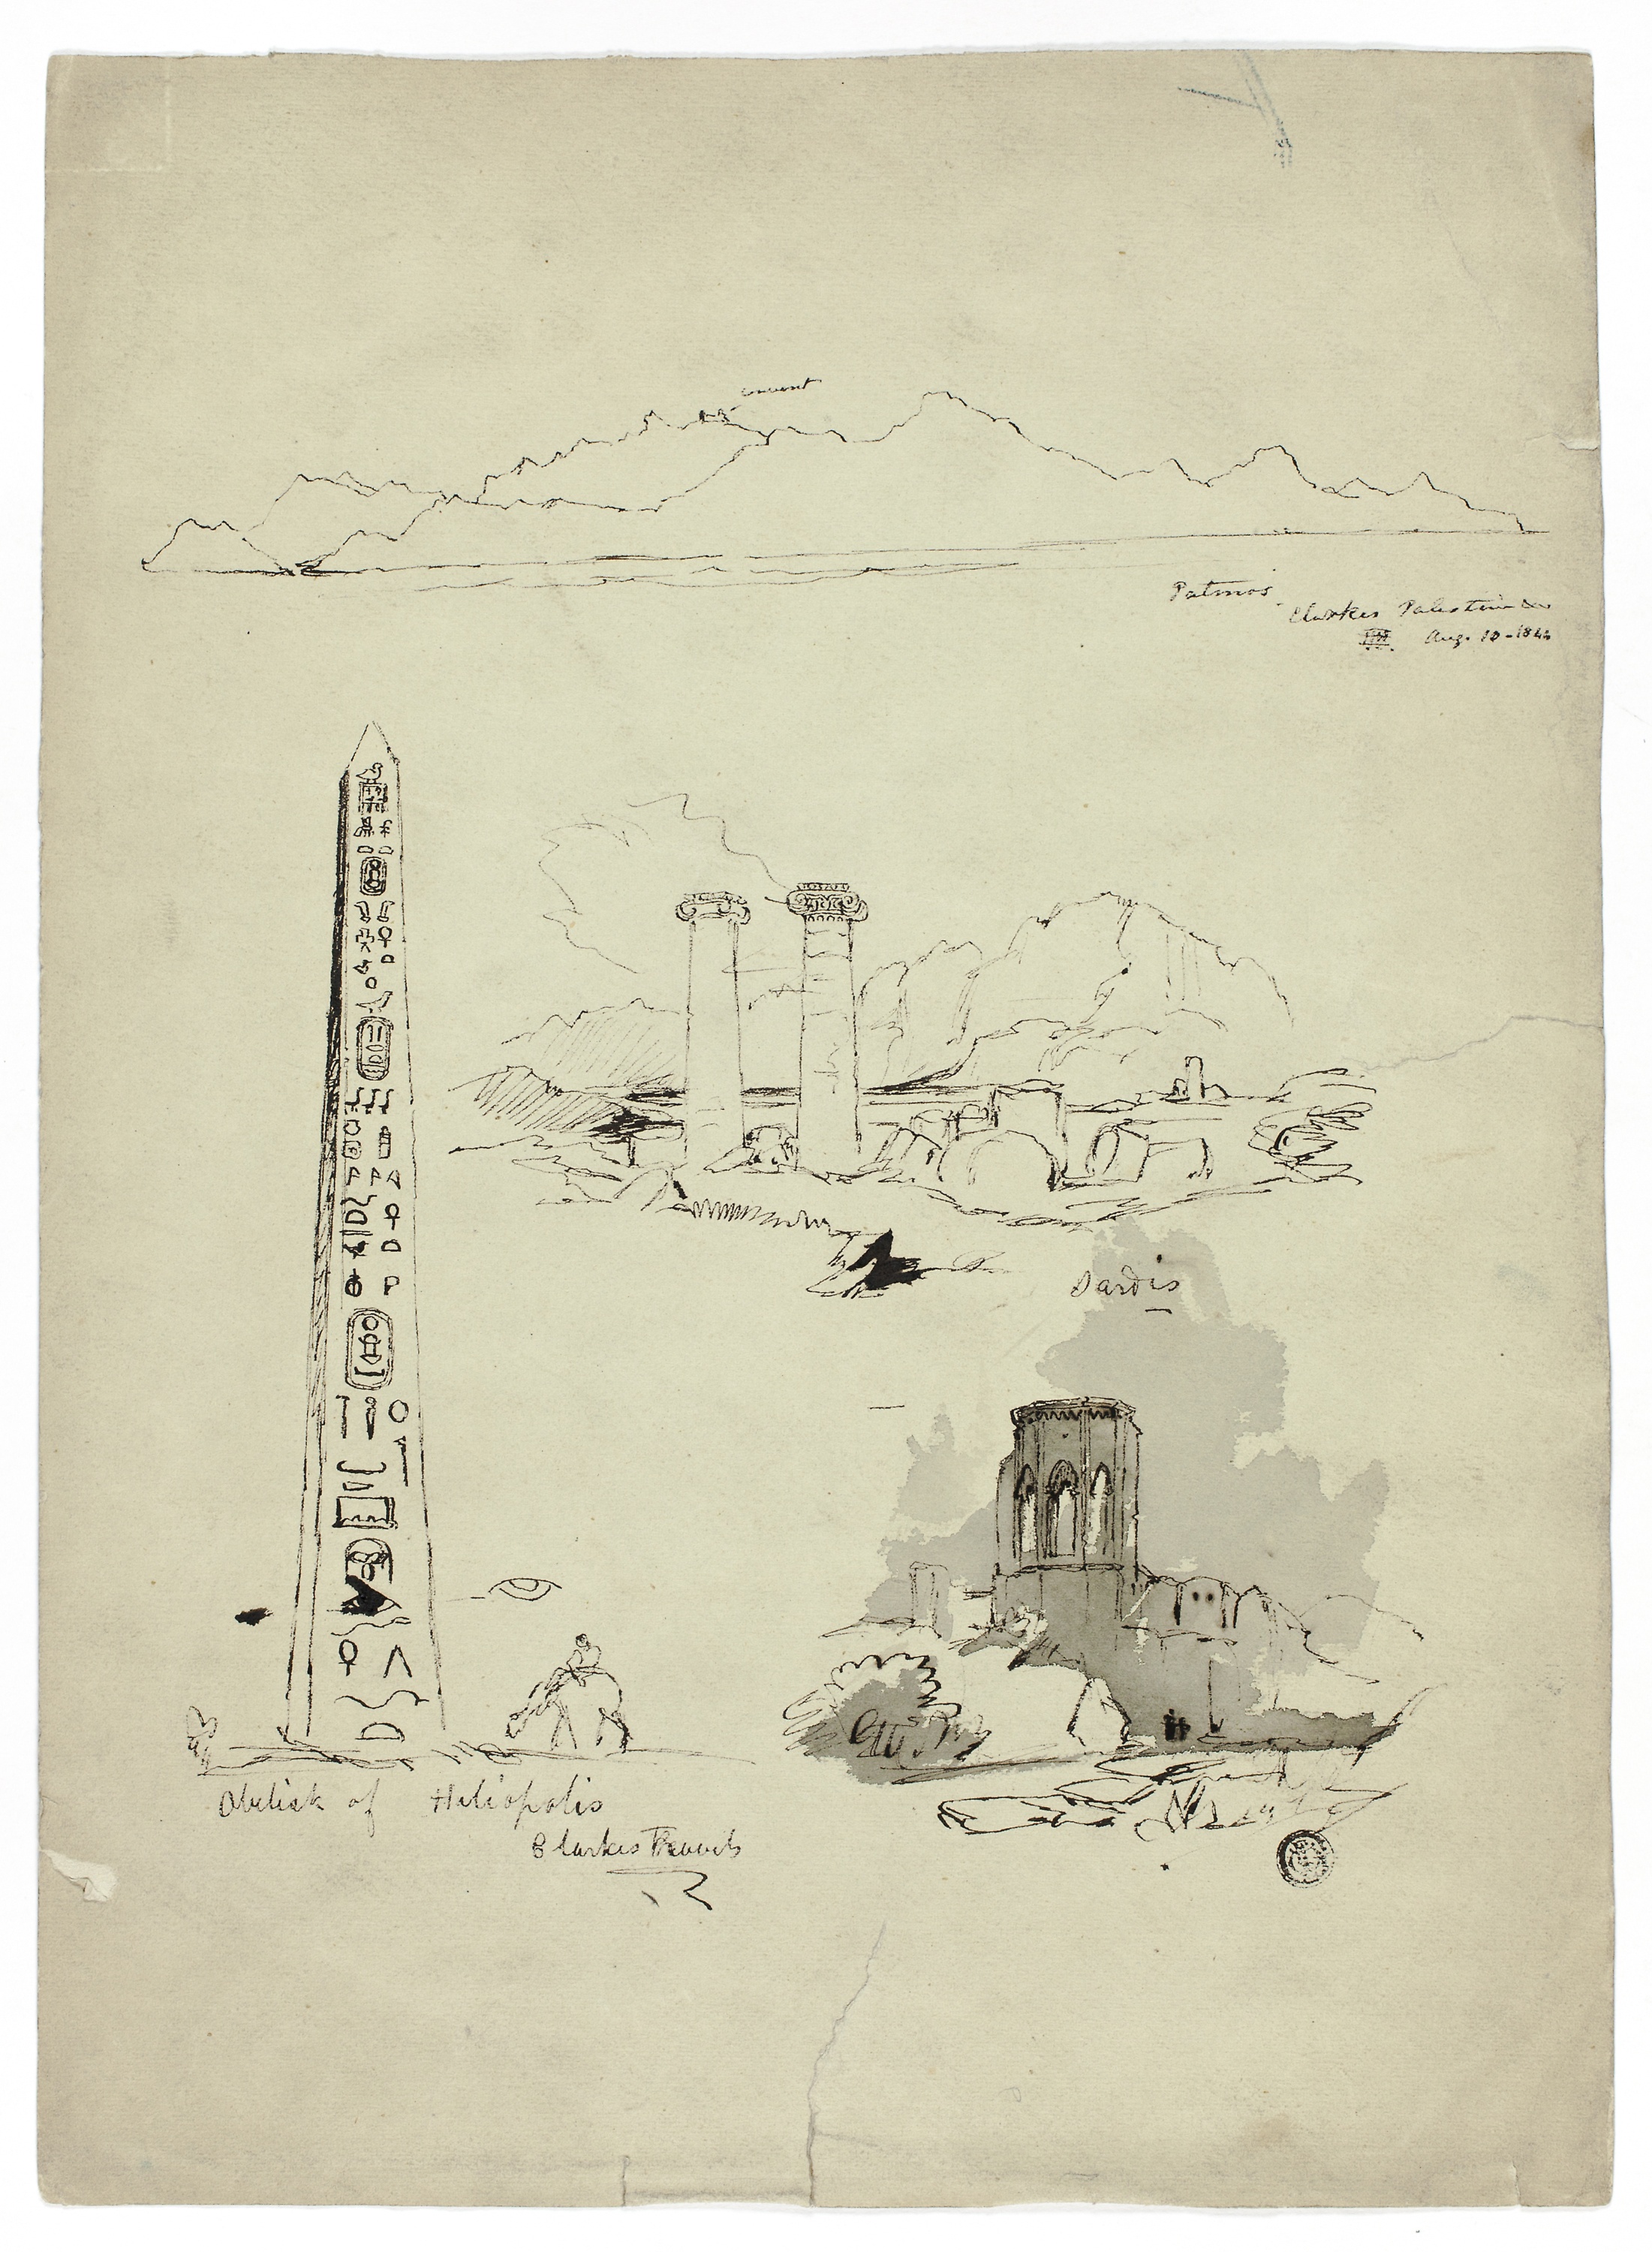 convent
Patmos
Clarkes Palestine
Aug. 10 - 184
Sardis
Obelisk of Heliopolis
Clarkes Travels